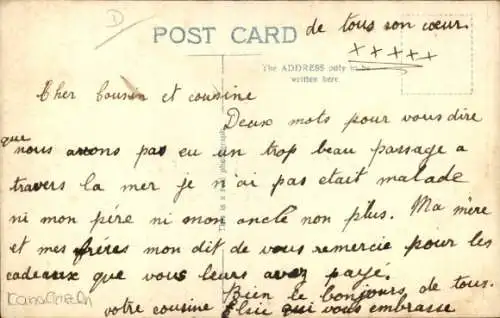 D
POST CARD
de tous son cœur.
x x x x x
The ADDRESS only to be
written here.
Cher Cousin et cousine
Deux mots pour vous dire
que nous avons pas eu un trop beau passage a
travers la mer je n'ai pas etait malade
ni mon pére ni mon oncle non plus. Ma mère
et mes fréres mon dit de vous remercie pour les
cadeaux que vous leurs avez payé.
Bien le bonjours, de tous.
votre cousine Elsie qui vous embrasse
This is a real photograph